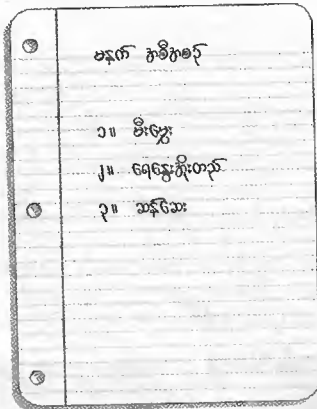 မနက် အစီအစဉ်
၁။ မီးမွှေး
၂။ ရေနွေးအိုးတည်
၃။ ဆန်ဆေး